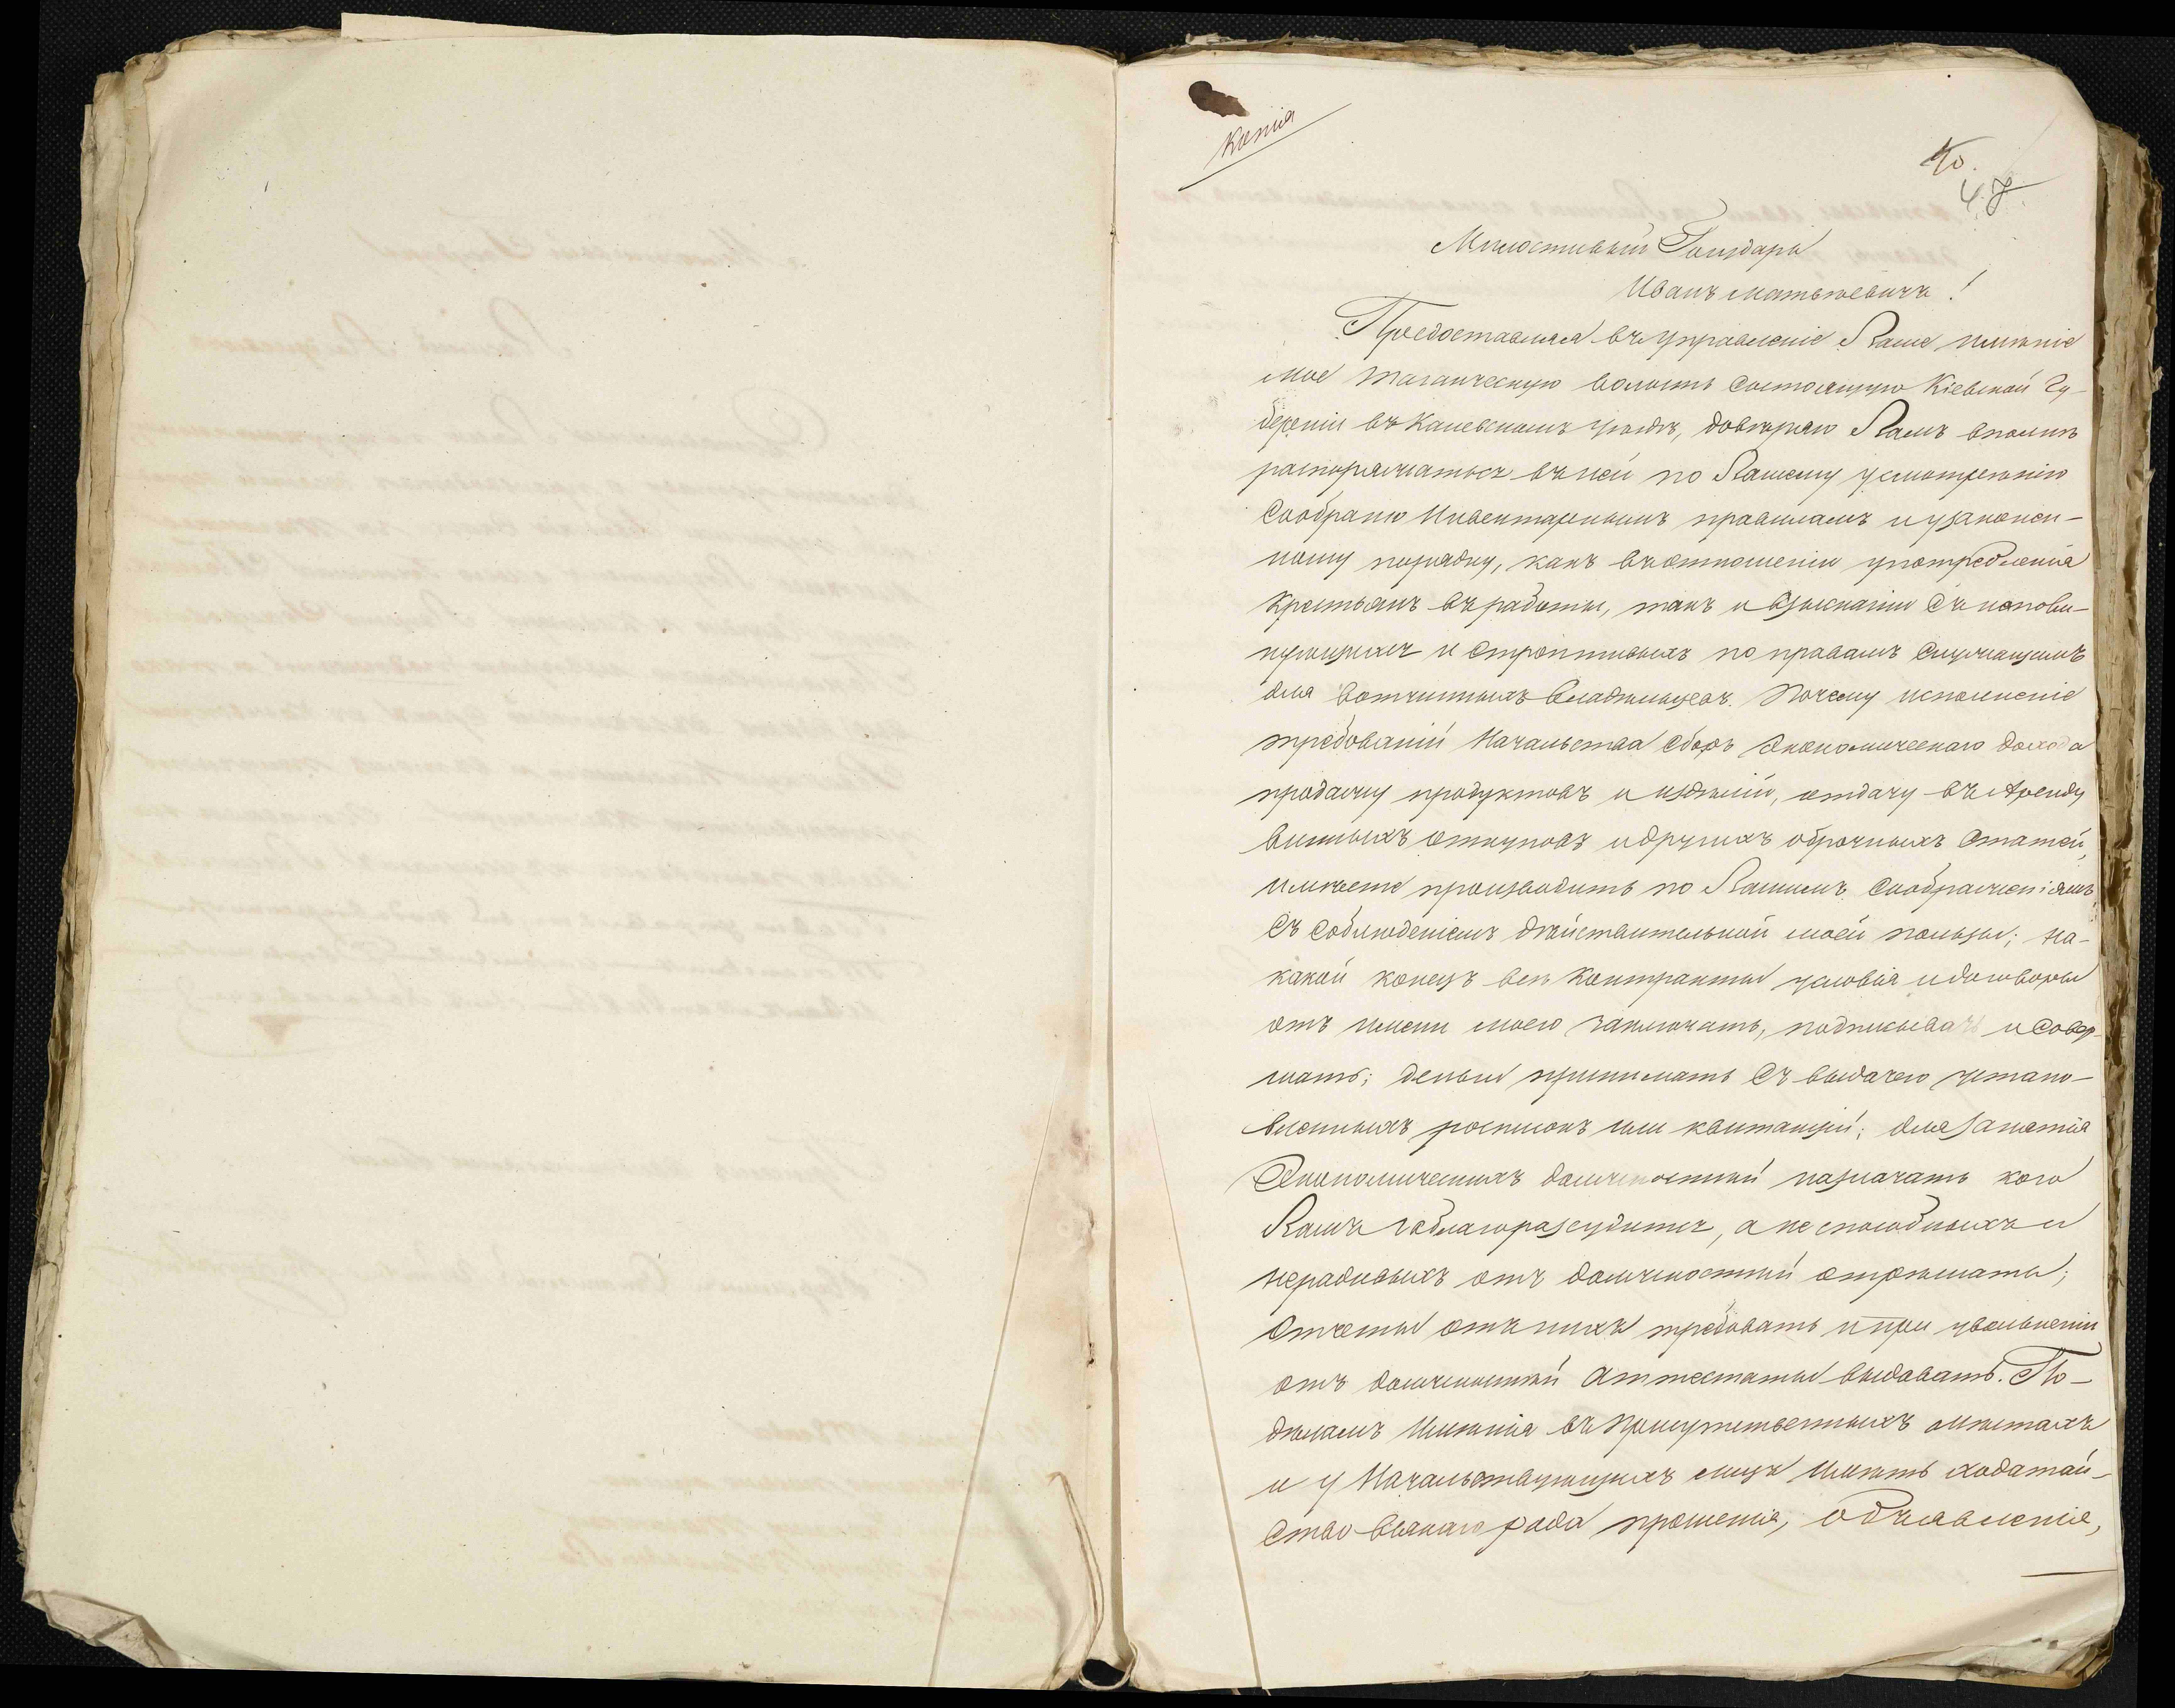 Копія
40.
47
Милостивый Государь
Иванъ Матвѣевичъ!
Предоставляя въ управленіе Ваше имѣніе
мое Таганческую волость состоящую Кіевской Гу-
берніи въ Каневскомъ уѣздѣ, довѣряю Вамъ вполнѣ
распоряжаться въ ней по Вашему усмотренію
сообразно Инвентарнымъ правиламъ и узаконен-
ному порядку, какъ въ отношеніи употребленія
крестьянъ въ работы, такъ и взысканіи съ непови-
нующихся и строптивыхъ по правамъ
для вотчинныхъ владѣльцевъ. Почему исполненіе
требованій Начальства сборъ экономическаго дохода
продажу продуктовъ и издѣлій, отдачу въ Аренду
винныхъ откуповъ и другихъ оброчныхъ статей,
имѣете производить по Вашимъ соображеніямъ,
съ соблюденіемъ дѣйствительной моей пользы; на-
какой конецъ всѣ контракты условія и договоры
отъ имени моего заключать, подписывать и совер-
шать; деньги принимать съ выдачею устано-
вленныхъ росписокъ или квитанцій; для занятія
Экономическихъ должностей назначать кого
Вамъ заблагоразсудится, а неспособныхъ и
нерадивыхъ отъ должностей отрѣшать;
отчеты отъ нихъ требовать и при увольненіи
отъ должностей аттестаты выдавать. По-
дѣламъ имѣнія въ присутственныхъ мѣстахъ
и у Начальствующихъ лицъ имѣть ходатай-
ство всякаго рода прошенія, объявленія,